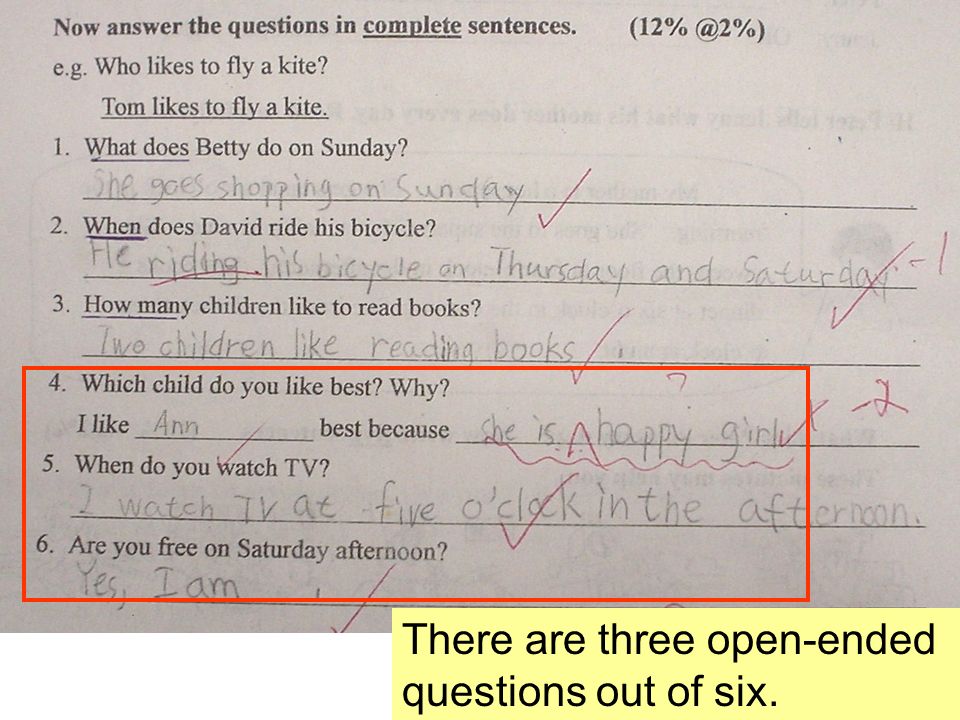 Now answer the questions in complete sentences. (12% @2%)
e.g. Who likes to fly a kite?
Tom likes to fly a kite.
1. What does Betty do on Sunday?
She goes shopping on Sunday
2. When does David ride his bicycle?
He riding his bicycle on Thursday and Saturday. -1
3. How many children like to read books?
Two children like reading books.
4. Which child do you like best? Why?
I like Ann best because she is happy girl -2
5. When do you watch TV?
I watch TV at five o'clock in the afternoon.
6. Are you free on Saturday afternoon?
Yes, I am.
There are three open-ended
questions out of six.